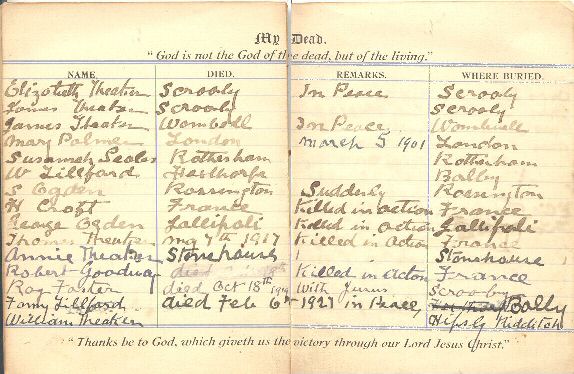 My Dead.
"God is not the God of the dead, but of the living."
NAME. DIED. REMARKS. WHERE BURIED.
Elizabeth Theaker Scrooby In Peace Scrooby
James Theaker Scrooby Scrooby
James Theaker Wombwell In Peace Wombwell
Mary Palmer London March 5 1901 London
Susannah Scales Rotherham Rotherham
W Lillford Hexthorpe Balby
S Ogden Rossington Suddenly Rossington
H Croft France Killed in action France
George Ogden Gallipoli Killed in action Gallipoli
Thomas Theaker May 7th 1917 Killed in Action France
Annie Theaker Stonehouse Stonehouse
Robert Goodway died Killed in Acton France
Roy Foster died Oct 18th With Jesus Scrooby
Fanny Lillford died Feb 6th 1927 in Peace Balby
William Theaker Redditch
"Thanks be to God, which giveth us the victory through our Lord Jesus Christ."